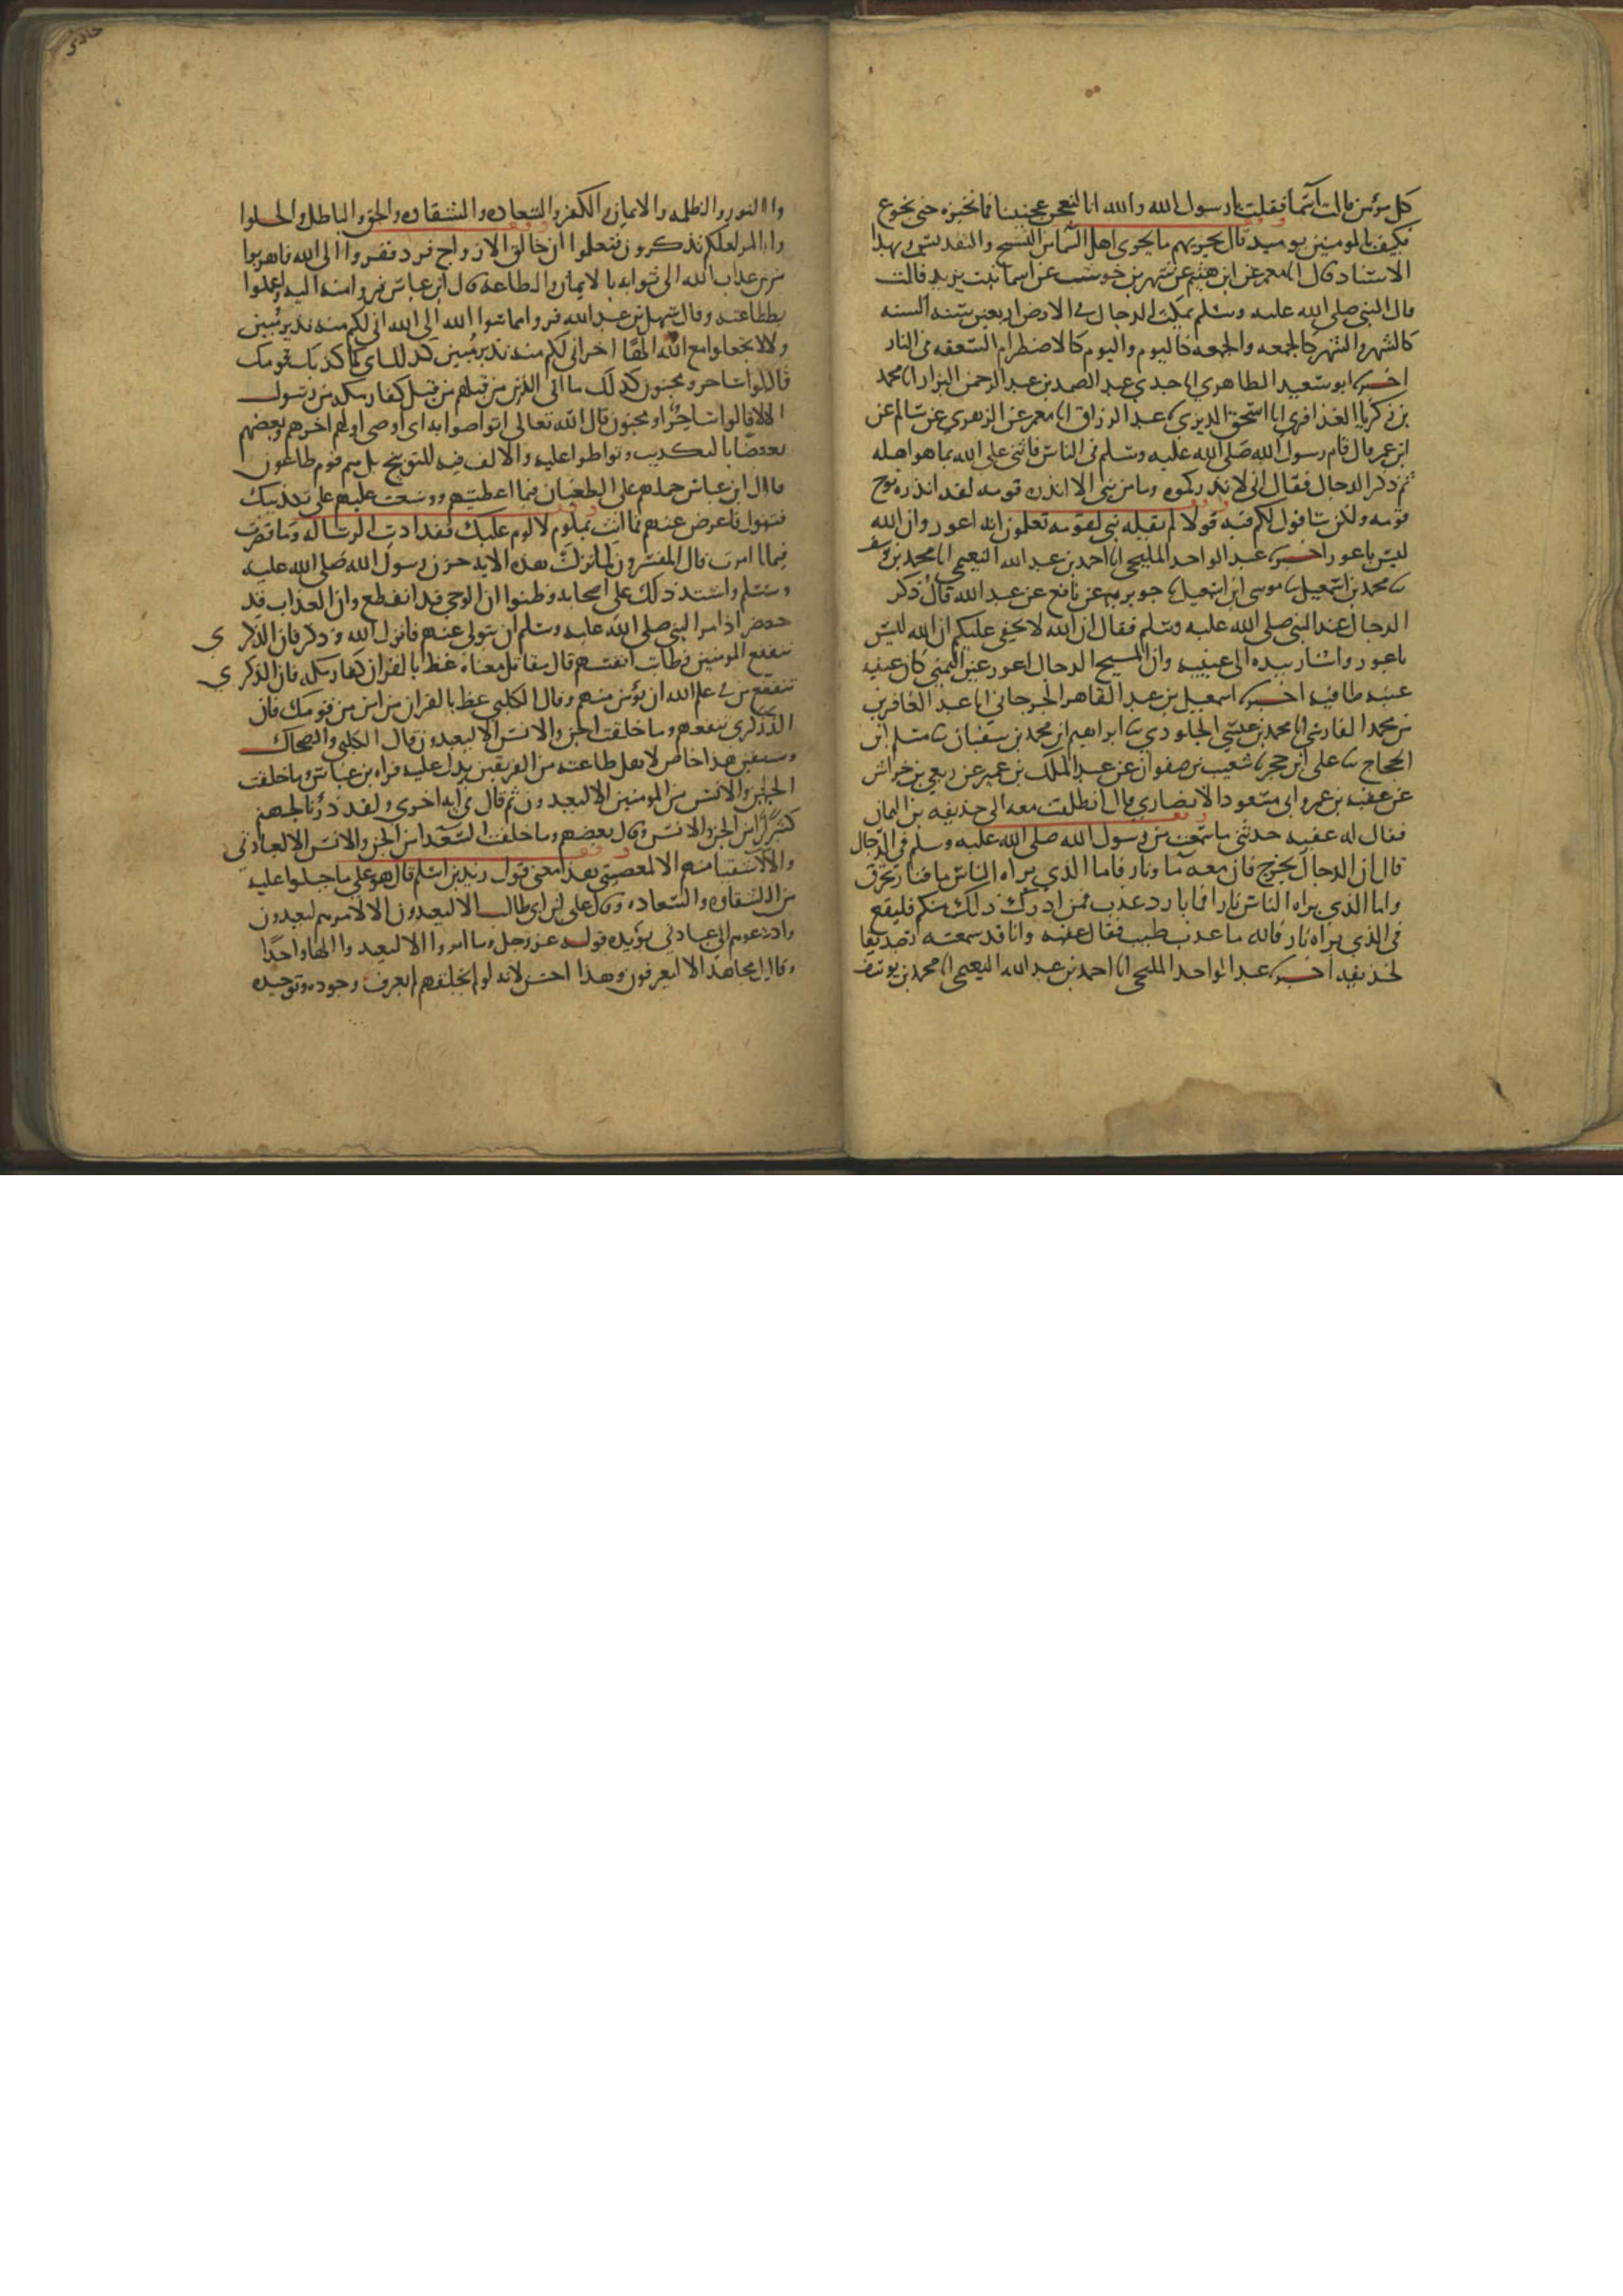 كل مؤمن قالت اسما فقلت يا رسول الله والله انا لنعجن عجيننا فما نخبزه حتى نجوع
فكيف بالمومنين يوميد قال يجزيهم ما يجزى اهل السماء من التسبيح والتقديس وبهذا
الاسناد قال انا معمر عن ابن خثيم عن شهر بن حوشب عن اسما بنت يزيد قالت
قال النبي صلى الله عليه وسلم يمكث الدجال في الارض اربعين سنه السنه
كالشهر والشهر كالجمعه والجمعه كاليوم واليوم كالاضطرام السعفه في النار
اخبرنا ابو سعيد الطاهري انا جدي عبد الصمد بن عبد الرحمن البزار انا محمد
بن زكريا العذافري انا اسحق الديري عبد الرزاق انا معمر عن الزهري عن سالم عن
ابن عمر قال قام رسول الله صلى الله عليه وسلم في الناس فاثنى على الله بما هو اهله
ثم ذكر الدجال فقال اني لانذركموه وما من نبي الا انذره قومه لقد انذره نوح
قومه ولكن ساقول لكم فيه قولا لم يقله نبي لقومه تعلمون انه اعور وان الله
ليس باعور اخبرنا عبد الواحد المليحي انا احمد بن عبد الله النعيمي انا محمد بن يوسف
نا محمد بن اسمعيل نا موسى ابن اسمعيل نا جويريه عن نافع عن عبد الله قال ذكر
الدجال عند النبي صلى الله عليه وسلم فقال ان الله لا يخفى عليكم ان الله ليس
باعور واشار بيده الى عينيه وان المسيح الدجال اعور عين اليمنى كان عينه
عنبه طافيه اخبرنا اسمعيل بن عبد القاهر الجرجاني انا عبد الغافر بن
بن محمد الفارسي انا محمد بن عيسى الجلودي نا ابراهيم ابن محمد بن سفيان نا مسلم ابن
الحجاج نا على ابن حجر نا شعيب بن صفوان عن عبد الملك بن عمير عن ربعي بن خراش
عن عقبه بن عمرو ابي مسعود الانصاري قال انطلقت معه الى حذيفه بن اليمان
فقال له عقبه حدثني ما سمعت من رسول الله صلى الله عليه وسلم في الدجال
قال ان الدجال يخرج فان معه ما ونار فاما الذي يراه الناس ما فنار تحرق
واما الذي يراه الناس نارا فما بارد عذب فمن ادرك ذلك منكم فليقع
في الذي يراه نار فانه ما عذب طيب فقال عقبه وانا قد سمعته تصديقا
لحذيفه اخبرنا عبد الواحد المليحي انا احمد بن عبد الله النعيمي انا محمد بن يوسف
والنور والظلمه والايمان والكفر والسعاده والشقاوه والحق والباطل والحلوا
والمر لعلكم تذكرون فتعلموا ان خالق الازواج فرد ففروا الى الله فاهربوا
من عذاب الله الى ثوابه بالايمان والطاعه قال ابن عباس فروا منه اليه واعملوا
بطاعته وقال سهل بن عبد الله فروا مما سوا الله الى الله اني لكم منه نذير مبين
ولا تجعلوا مع الله الها اخر اني لكم منه نذير مبين كذلك اى كما كذبك قومك
قالوا ساحر ومجنون كذلك ما اتى الذين من قبلهم من قبل كفار مكه من رسول
الا قالوا ساحر او مجنون قال الله تعالى اتواصوا به اى اوصى اولهم اخرهم وبعضهم
بعضا بالتكذيب وتواطوا عليه والالف فيه للتوبيخ بل هم قوم طاغون
قال ابن عباس حملهم على الطغيان فيما اعطيتهم ووسعت عليهم على تكذيبك
فتول فاعرض عنهم فما انت بملوم لا لوم عليك فقد اديت الرساله وما قصرت
فيما امرت قال المفسرون لما نزلت هذه الايه حزن رسول الله صلى الله عليه
وسلم واشتد ذلك على اصحابه وظنوا ان الوحي قد انقطع وان العذاب قد
حضر اذ امر النبي صلى الله عليه وسلم ان يتولى عنهم فانزل الله وذكر فان الذكرى
تنفع المومنين فطابت انفسهم قال مقاتل معناه عظ بالقران كفار مكه فان الذكرى
تنفع من في علم الله ان يؤمن منهم وقال الكلبي عظ بالقران من امن من قومك فان
الذكرى تنفعهم وما خلقت الجن والانس الا ليعبدون قال الكلبي والضحاك
وسفين هذا خاص لاهل طاعته من الفريقين يدل عليه قراه بن عباس وما خلقت
الجن والانس من المومنين الا ليعبدون ثم قال في ايه اخرى ولقد ذرانا لجهنم
كثيرا من الجن والانس وقال بعضهم وما خلقت السعدا من الجن والانس الا لعبادتي
والاشقيا منهم الا لمعصيتي هذا معنى قول زيد بن اسلم قال هو على ما جبلوا عليه
من الشقاوه والسعاده وقال على ابن ابي طالب الا ليعبدون الا لامرهم ليعبدون
وادعوهم الى عبادتي يؤيده قوله عز وجل وما امروا الا ليعبدوا الها واحدا
وقال مجاهد الا ليعرفون وهذا احسن لانه لو لم يخلقهم لم يعرف وجوده وتوحيده